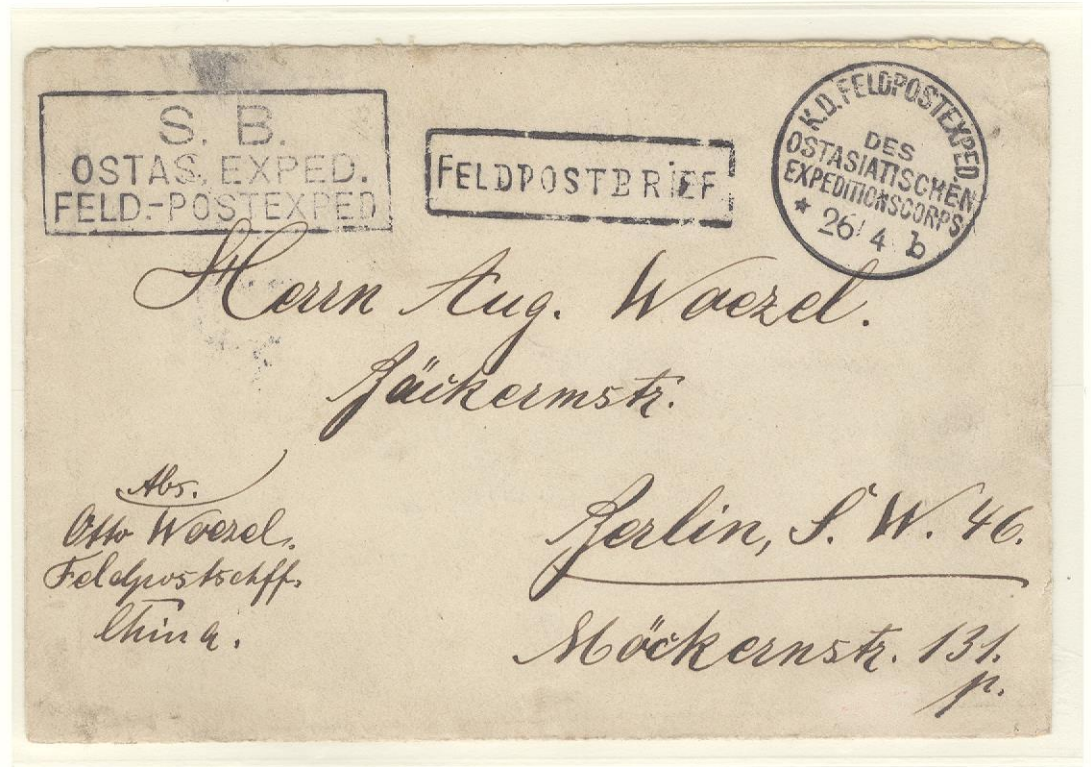 S. B.
OSTAS. EXPED.
FELD.-POSTEXPED
FELDPOSTBRIEF
K.D. FELDPOSTEXPED.
DES
OSTASIATISCHEN
EXPEDITIONSCORPS
* 26/4 b
Herrn Aug. Woezel.
Bäckermstr.
Berlin, S. W. 46.
Möckernstr. 131.
p.
Abs.
Otto Woezel.
China.